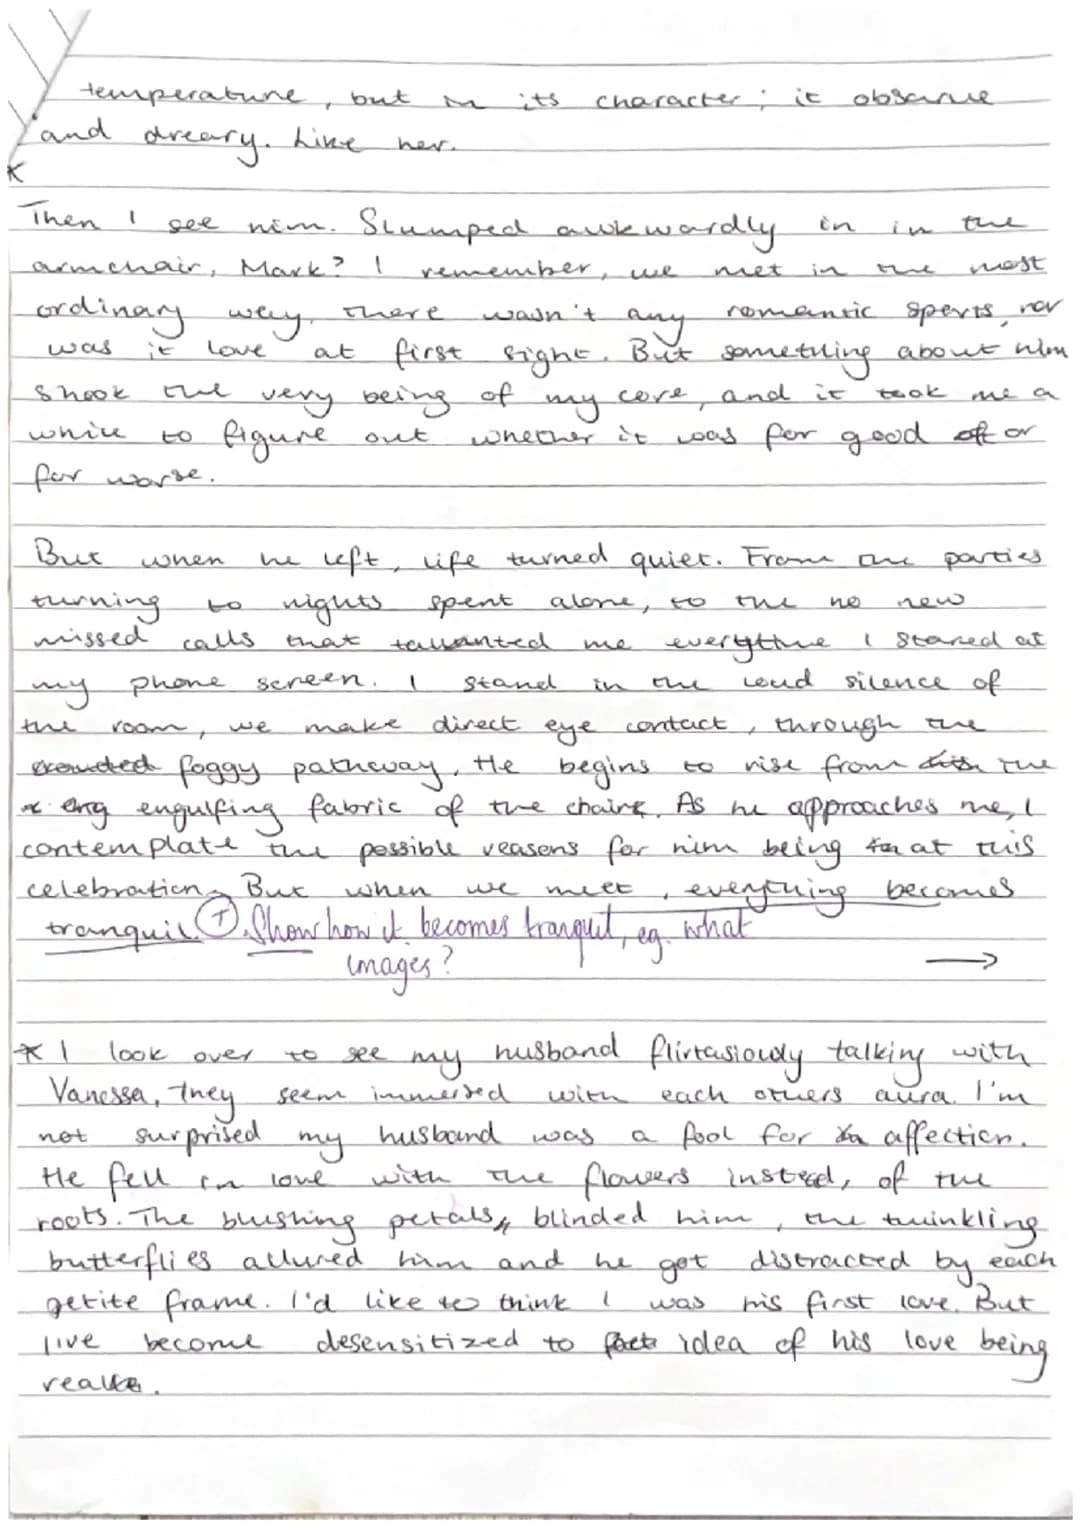 temperature, but in its character; it obscure
and dreary. Like her.
*
Then I see him. Slumped awkwardly in in the
armchair, Mark? I remember, we met in the most
ordinary way, there wasn't any romantic sperts, nor
was it love at first sight. But something about him
shook the very being of my core, and it took me a
while to figure out whether it was for good off or
for worse.
But when he left, life turned quiet. From the parties
turning to nights spent alone, to the no new
missed calls that me everytime I stared at
my phone screen. I stand in the loud silence of
the room, we make direct eye contact, through the
crowded foggy pathway. He begins to rise from the
eng engulfing fabric of the chair. As he approaches me, I
contemplate the possible reasons for him being at this
celebration. But when we meet, everything becomes
tranquil. T Show how it becomes tranquil, eg. what
images?
* I look over to see my husband flirtasiously talking with
Vanessa, They seem immersed with each others aura. I'm
not surprised my husband was a fool for affection.
He fell in love with the flowers instead, of the
roots. The blushing petals, blinded him, the twinkling
butterflies allured him and he got distracted by each
petite frame. I'd like to think I was his first love. But
I've become desensitized to idea of his love being